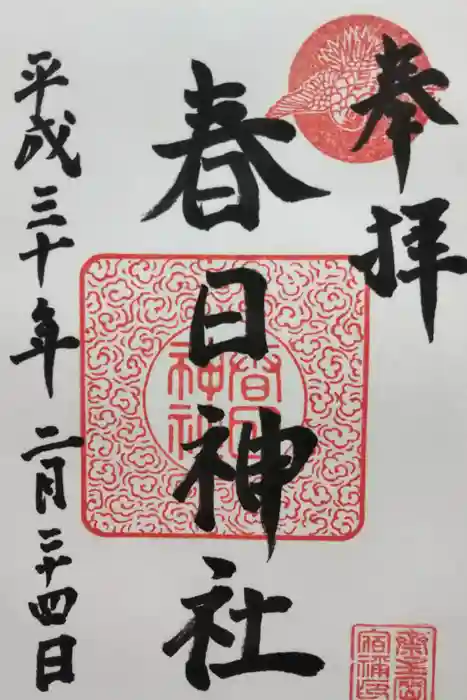 奉拝
春日神社
平成三十年二月二十四日
春日
神社